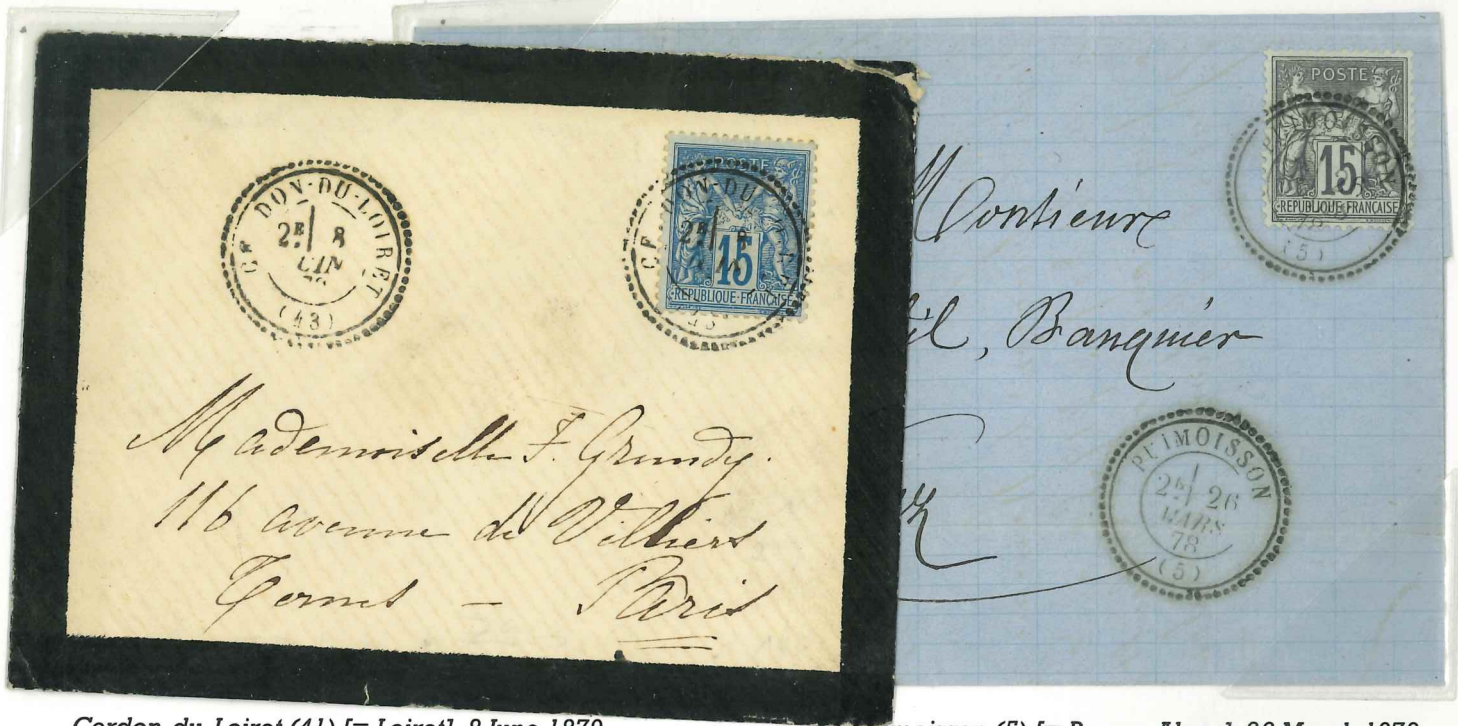 CE DON-DU-LOIRET
2E 8
UIN
(43)
POSTE
15
REPUBLIQUE FRANCAISE
DON-DU
2E 8
Mademoiselle F. Grundy.
116 avenue de Villiers
Ternes - Paris
POSTE
15
REPUBLIQUE FRANCAISE
MOISSON
(5)
Montieure
il, Banquier
PUIMOISSON
2E 26
MARS
78
(5)
Cerdon-du-Loiret (41) [= Loiret], 8 June 1879
moisson (5) [= Basses-Alpes], 26 March 1878